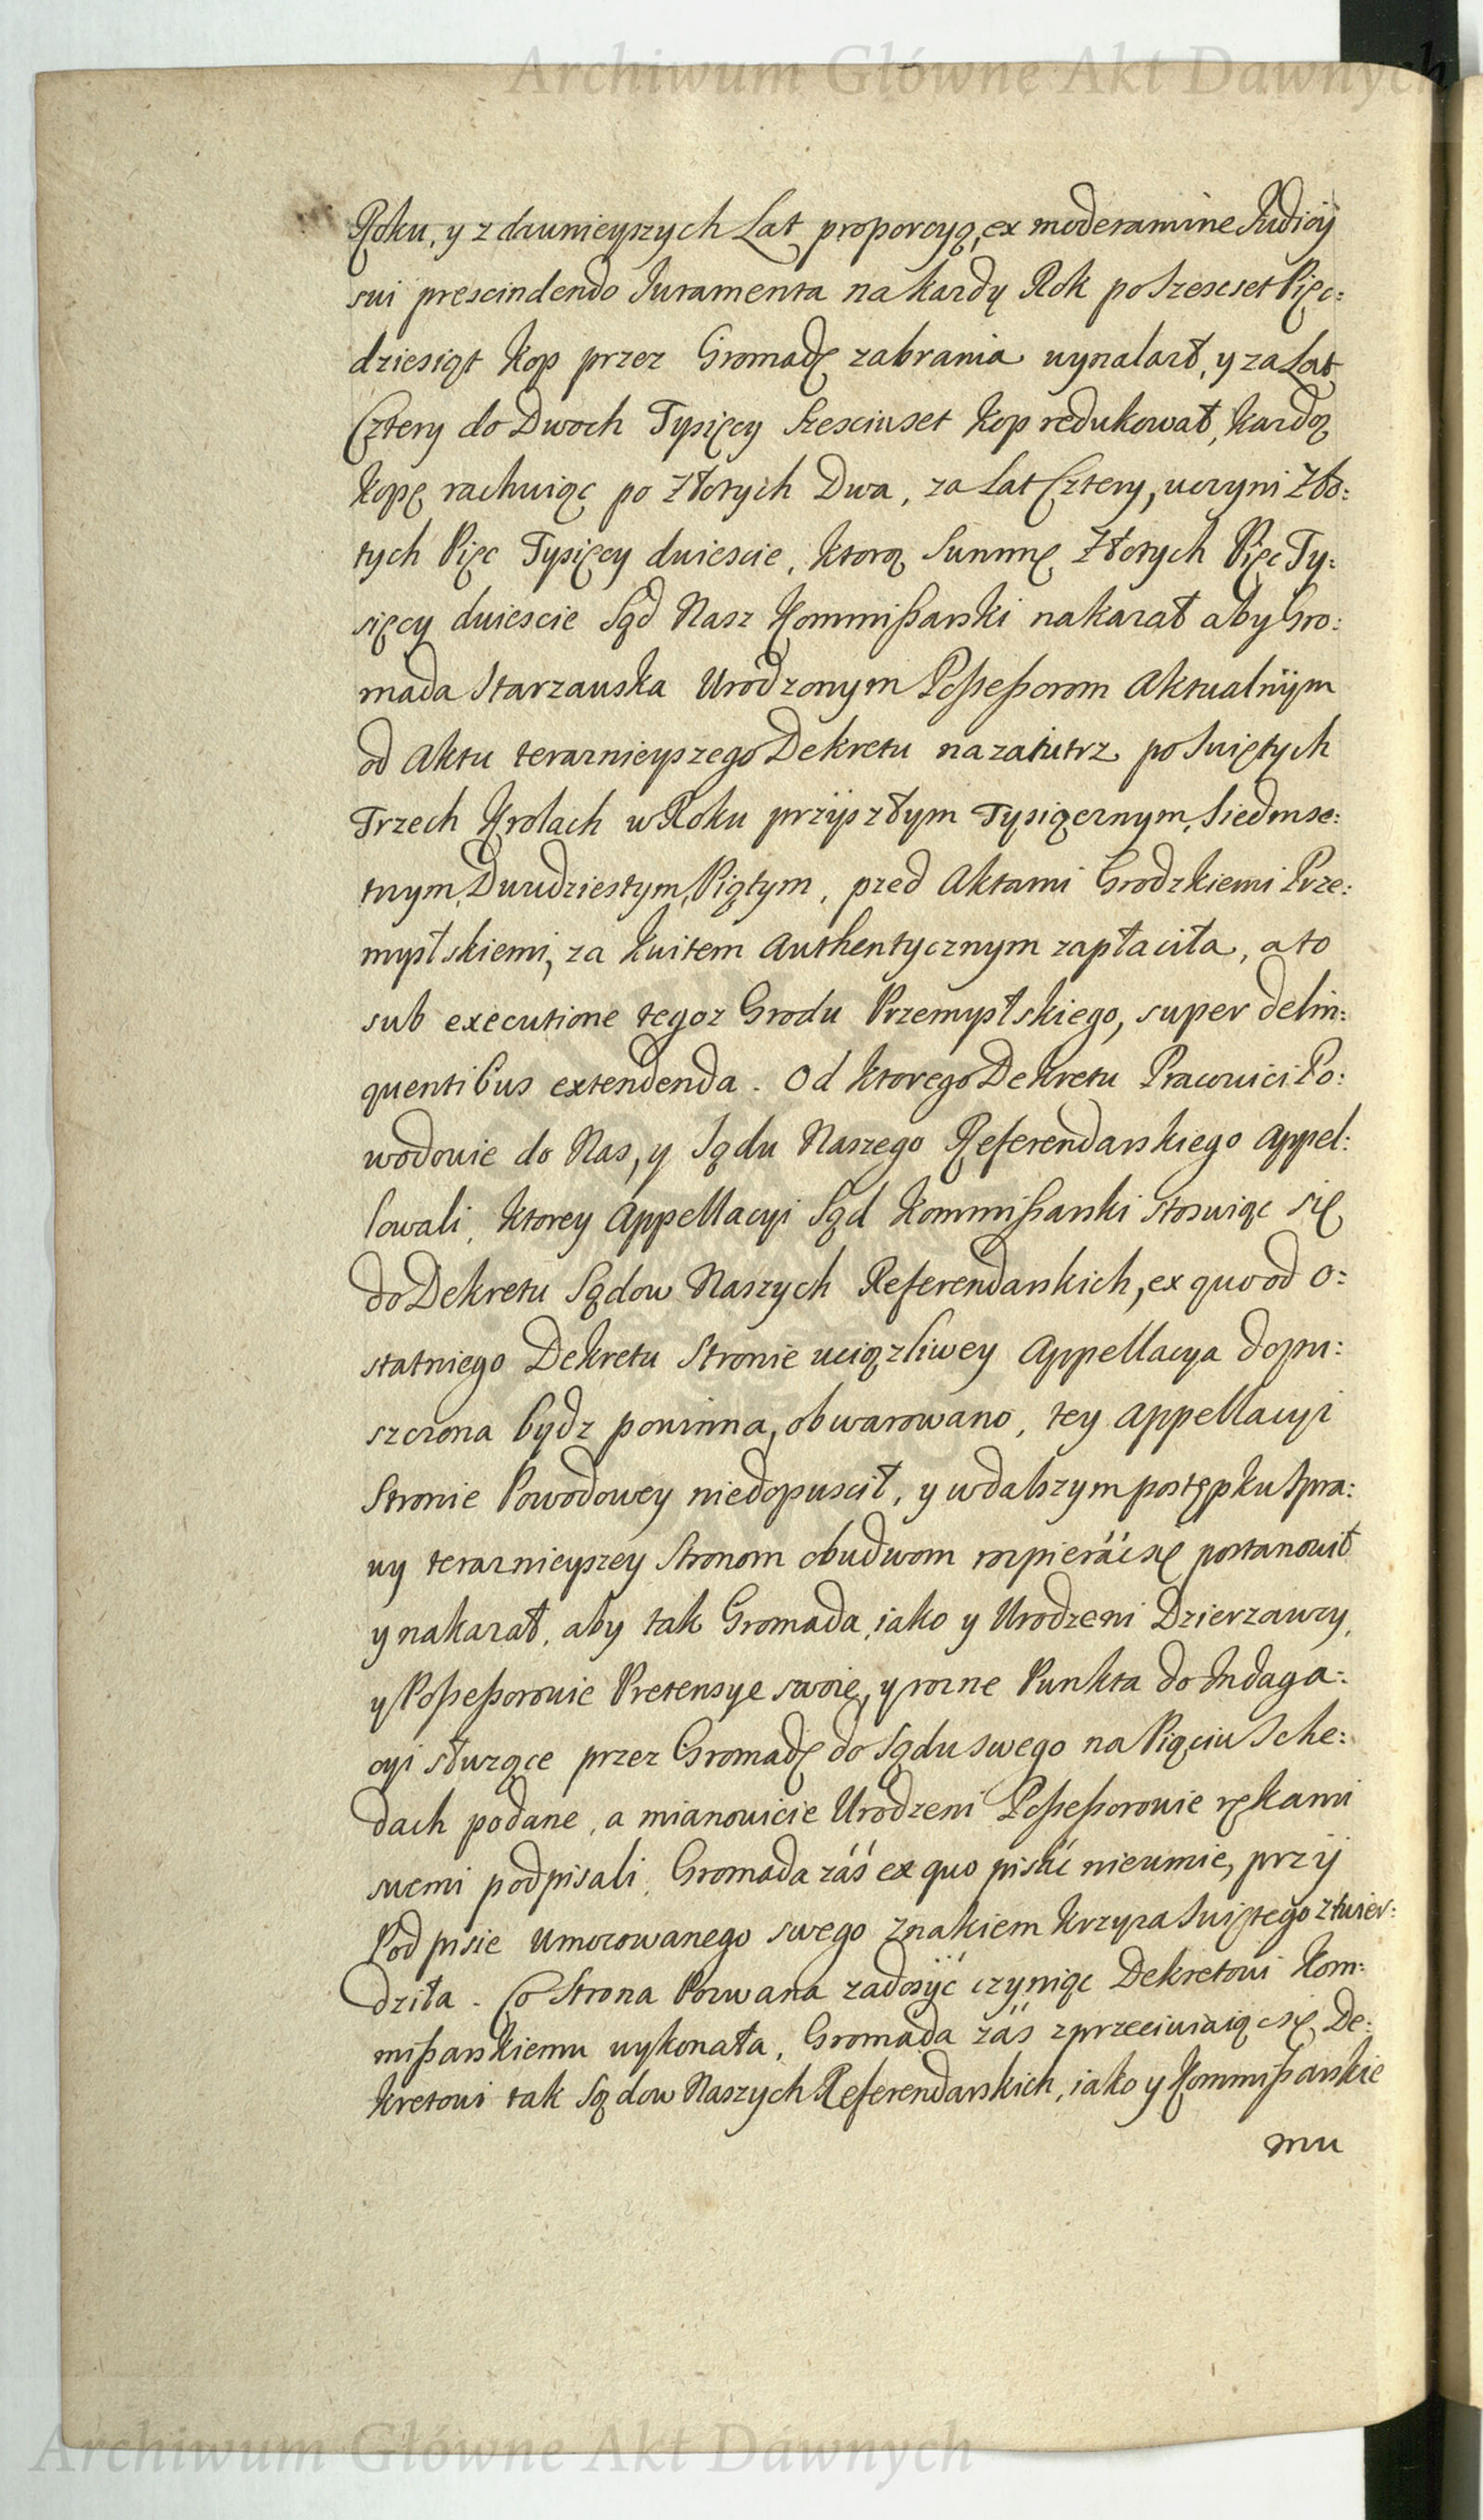 Archiwum Główne Akt Dawnych
Roku, y z dawnieyszych Lat proporcyą, ex moderamine Iudicij
sui prescindendo Iuramenta na kazdy Rok po Szescset Pięc:
dziesiąt Kop przez Gromadę zabrania wynalazł, y za Lat
Cztery do Dwoch Tysięcy Szesciuset Kop redukował, kazdą
Kopę rachuiąc po Złotych Dwa, za Lat Cztery, uczyni Zło:
tych Pięc Tysięcy dwiescie, ktorą Summę Złotych Pięc Ty:
sięcy dwiescie Sąd Nasz Kommißarski nakazał aby Gro:
mada Starzawska Urodzonym Poßeßorom Aktualnÿm
od Aktu teraznieyszego Dekretu nazaiutrz po Swiętych
Trzech Krolach w Roku przÿszłym Tysiącznym, Siedmse:
tnym, Dwudziestym, Piątym, przed Aktami Grodzkiemi Prze:
mysłskiemi, za Kwitem Authentycznym zapłaciła, a to
sub executione tegoz Grodu Przemysłskiego, super delin:
quentibus extendenda. Od ktorego Dekretu Pracowici Po:
wodowie do Nas, y Sądu Naszego Referendarskiego appel:
lowali, ktorey Appellacyi Sąd Kommißarski stosuiąc się
do Dekretu Sądow Naszych Referendarskich, ex quo od o:
statniego Dekretu Stronie uciązliwey Appellacya dopu:
szczona bydz powinna, obwarowano, tey appellacyi
Stronie Powodowey niedopuscił, y w dalszym postępku Spra:
wy teraznieyszey Stronom obudwom rozpieráć się postanowił
y nakazał, aby tak Gromada, iako y Urodzeni Dzierzawcy,
y Poßeßorowie Pretensye swoie, y rozne Punkta do Indaga:
cyi słuzące przez Gromadę do Sądu swego na Piąciu Sche:
dach podane, a mianowicie Urodzeni Poßeßorowie rękami
swemi podpisali, Gromada záś ex quo pisáć nieumie, przÿ
Podpisie umocowanego swego znakiem Krzyza Swiętego ztwier:
dziła. Co Strona Pozwana zadosÿć czyniąc Dekretowi Kom:
mißarskiemu wykonała, Gromada záś zprzeciwiaiąc się De:
kretowi tak Sądow Naszych Referendarskich, iako y Kommißarskie
mu
Archiwum Główne Akt Dawnych